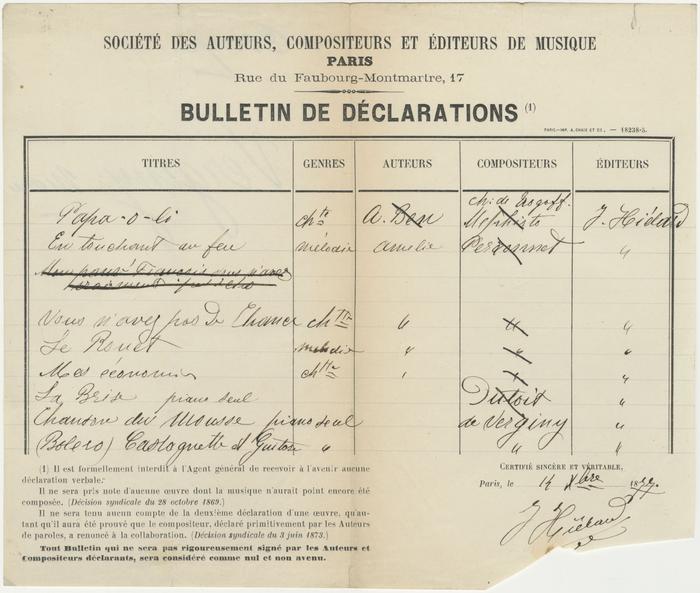 SOCIÉTÉ DES AUTEURS, COMPOSITEURS ET ÉDITEURS DE MUSIQUE
PARIS
Rue du Faubourg-Montmartre, 17
BULLETIN DE DÉCLARATIONS (1)
PARIS.—IMP. A. CHAIX ET Cie. — 18238-5.
TITRES GENRES AUTEURS COMPOSITEURS ÉDITEURS
Ch. de
Papa-o-li chtte A. Ben Mephisto J. Hiélard
En touchant au feu mélodie Amélie Perronnet "
Vous n'avez pas de chance chtte " " "
Le Rouet mélodie " " "
Mes économies chtte " " "
La Brise piano seul Dutoit "
Chanson du Mousse piano seul de Verginy "
(Bolero) Castagnette et Guitare " " "
(1) Il est formellement interdit à l'Agent général de recevoir à l'avenir aucune
déclaration verbale.
Il ne sera pris note d'aucune œuvre dont la musique n'aurait point encore été
composée. (Décision syndicale du 28 octobre 1869.)
Il ne sera tenu aucun compte de la deuxième déclaration d'une œuvre, qu'au-
tant qu'il aura été prouvé que le compositeur, déclaré primitivement par les Auteurs
de paroles, a renoncé à la collaboration. (Décision syndicale du 3 juin 1873.)
Tout Bulletin qui ne sera pas rigoureusement signé par les Auteurs et
Compositeurs déclarants, sera considéré comme nul et non avenu.
CERTIFIÉ SINCÈRE ET VÉRITABLE,
Paris, le 14 Xbre 1877.
J Hiélard